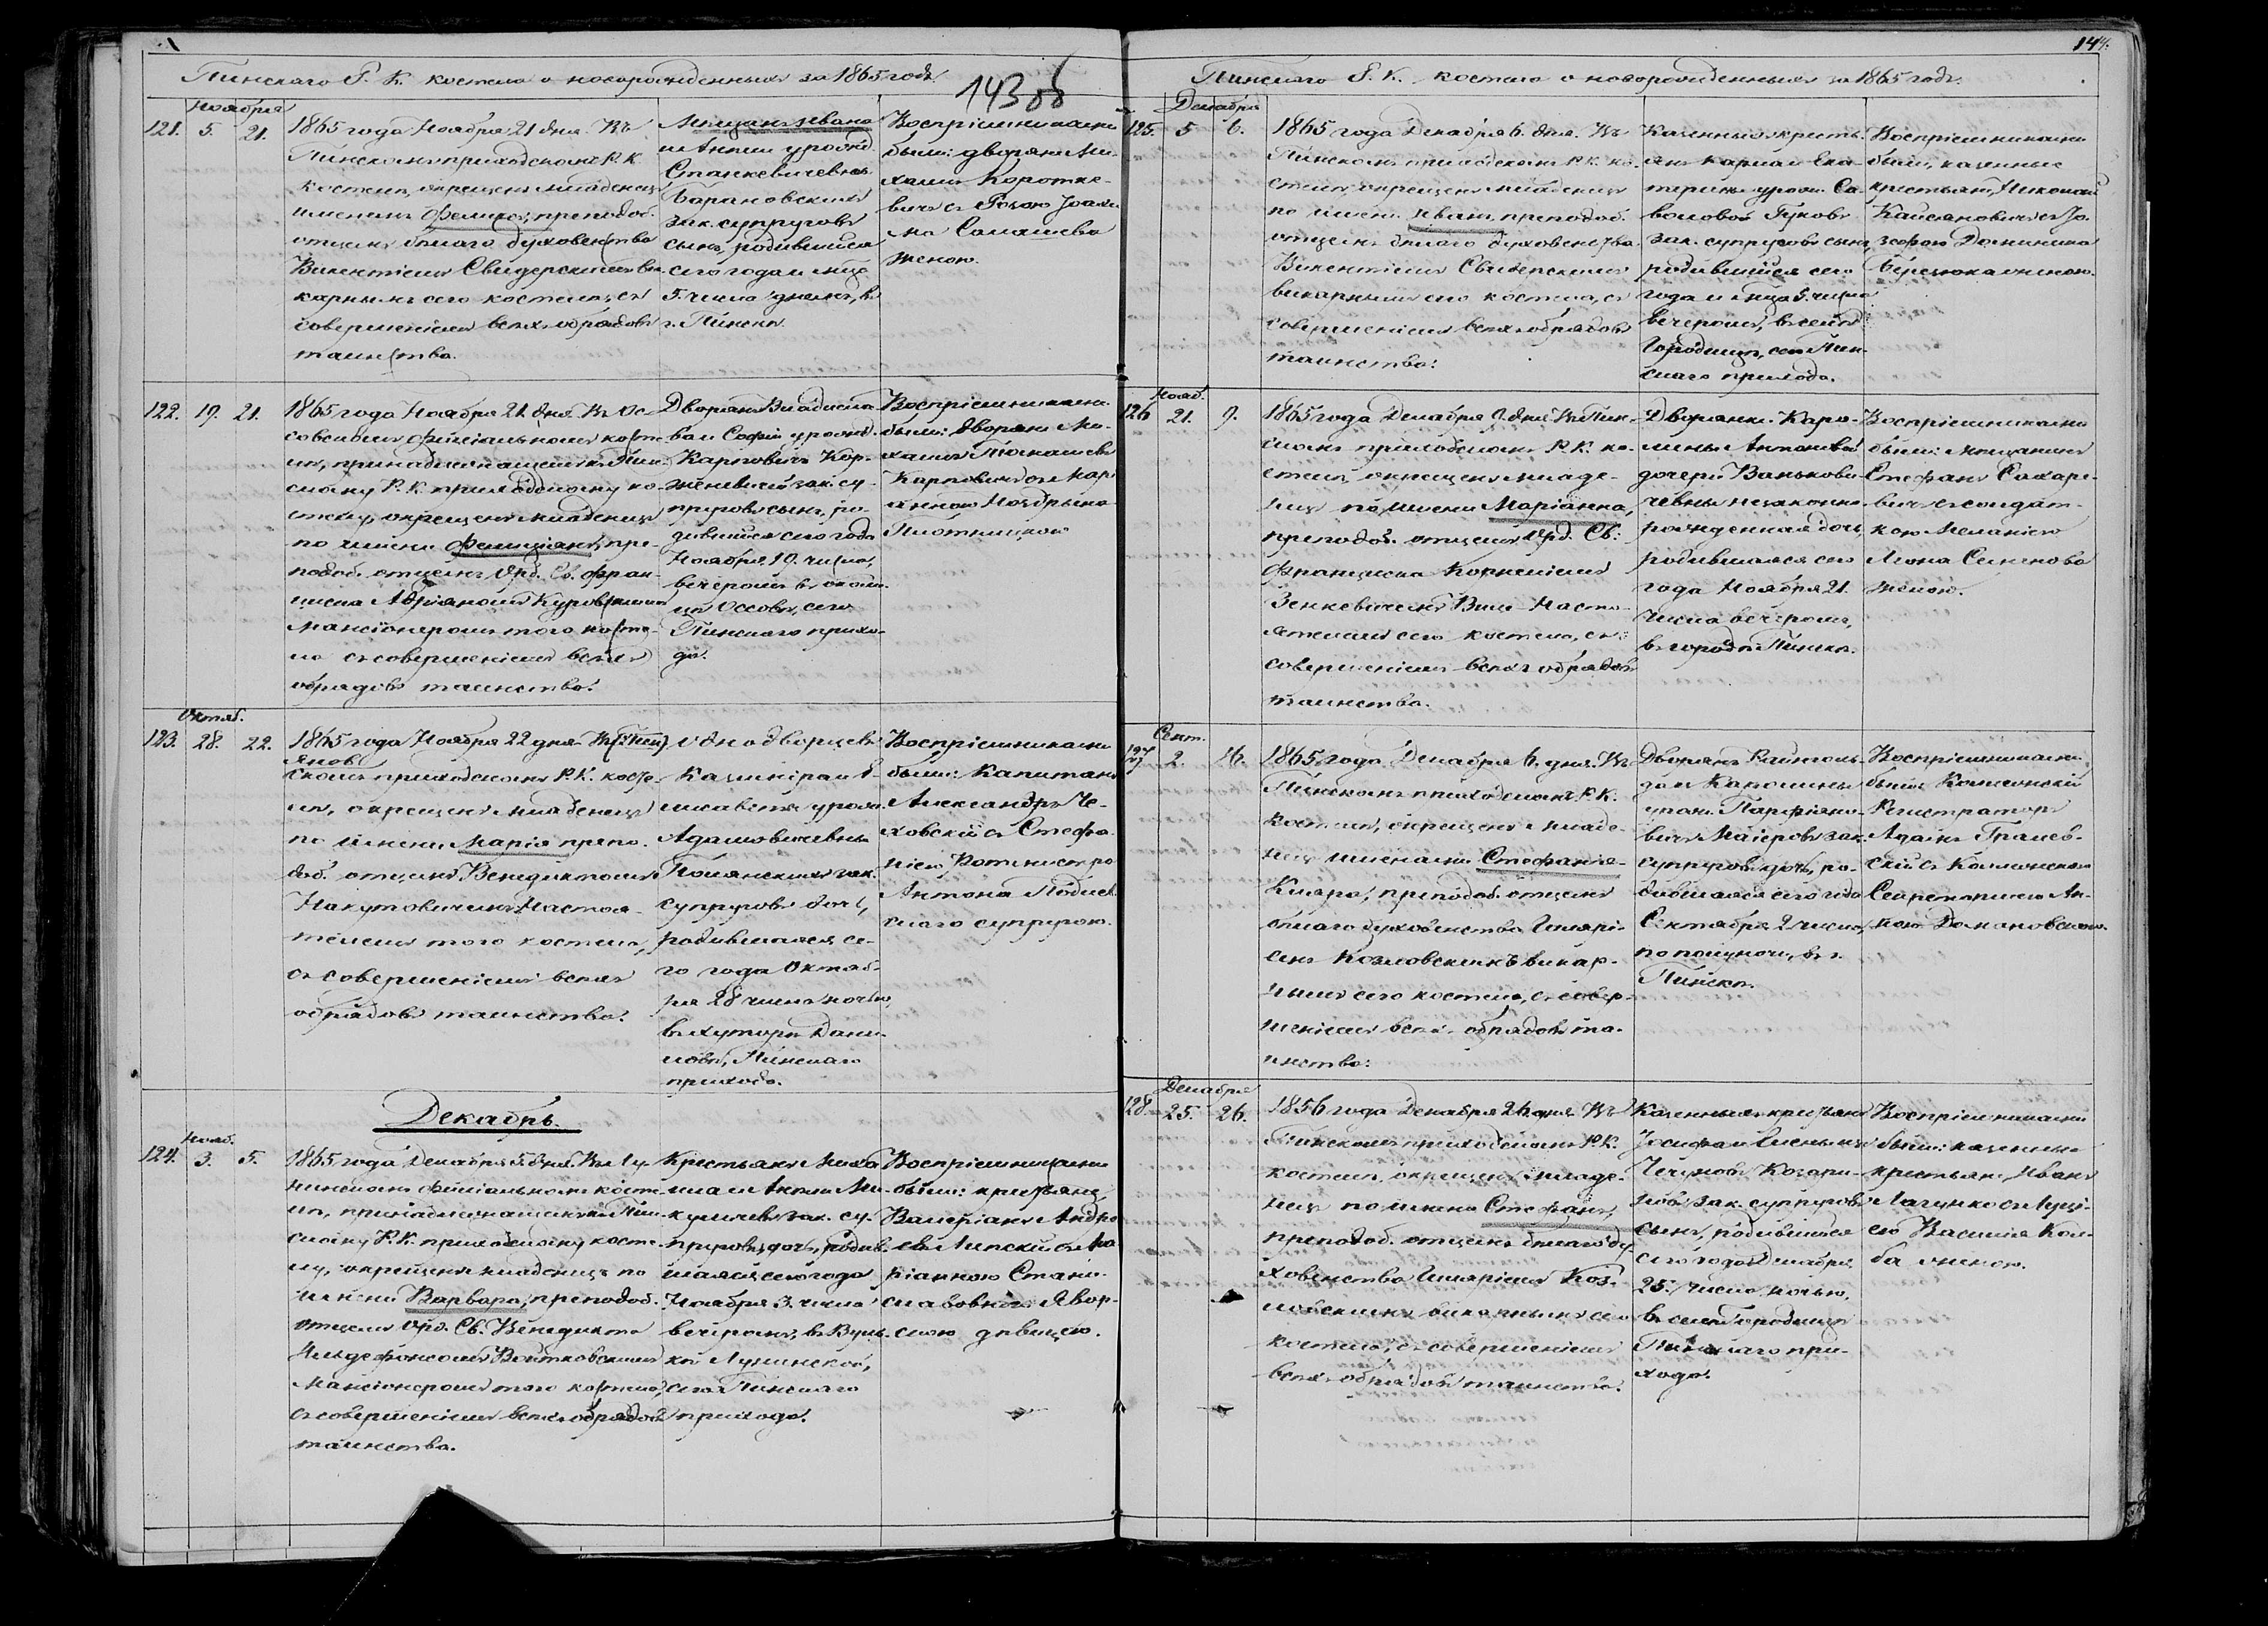 Пинскаго Р. К. костела о новорожденныхъ за 1865 годъ.
143 об
Ноября
121. 5. 21.
1865 года Ноября 21 дня. Въ
Пинскомъ приходскомъ Р. К.
костелѣ, окрещенъ младенецъ
именемъ Феликсъ, преподоб.
отцемъ бѣлаго духовенства
Викентіемъ Свидерскимъ ви-
карнымъ сего костела, съ
совершеніемъ всѣхъ обрядовъ
таинства.
Мѣщанъ Ивана
и Анны урожд.
Станкевичевны
Барановскихъ
зак. супруговъ
сынъ, родившійся
сего года и мѣс.
5. числа днемъ, въ
г. Пинскѣ.
Воспріемниками
были: дворяне Ми-
хаилъ Коротке-
вичъ съ Розою Іоахи-
ма
женою.
122. 19. 21.
1865 года Ноября 21. дня. Въ Ос-
совскомъ филіальномъ косте-
лѣ, принадлежащемъ къ Пин-
скому Р. К. приходскому ко-
стелу, окрещенъ младенецъ
по имени Фелиціанъ, пре-
подоб. отцемъ Орд. Св. Фран-
циска Адріаномъ
Мансіонеромъ того косте-
ла съ совершеніемъ всѣхъ
обрядовъ таинства.
Дворянъ Владисла-
ва и Софіи урожд.
Карповичъ Кор-
женевичей зак. су-
пруговъ сынъ, ро-
дившійся сего года
Ноября 19. числа,
вечеромъ въ околи-
цѣ Оссовѣ, сего
Пинскаго прихо-
да.
Воспріемниками
были: дворяне Ми-
хаилъ Томашевъ
Карповичъ съ Мар-
іанною
Плотницкою
Октяб.
123. 28. 22.
1865 года Ноября 22 дня. Въ (Пин)
Янов
скомъ приходскомъ Р. К. косте-
лѣ, окрещенъ младенецъ
по имени Марія препо-
доб. отцемъ Венедиктомъ
Накутовичемъ Настоя-
телемъ того костела,
съ совершеніемъ всѣхъ
обрядовъ таинства.
Однодворцевъ
Казиміра и Е-
лисаветы урож.
Адамовичевны
Полянскихъ зак.
супруговъ дочь,
родившаяся се-
го года Октяб-
ря 28 числа ночью,
въ хуторѣ Дани-
ловѣ, Пинскаго
прихода.
Воспріемниками
были: Капитанъ
Александръ Че-
ховскій съ Стефа-
ніею Ротмистра
Антона
скаго супругою.
Декабрь.
Нояб.
124. 3. 5.
1865 года Декабря 5 дня. Въ Лу-
нинскомъ филіальномъ косте-
лѣ, принадлежащемъ къ Пин-
скому Р. К. приходскому косте-
лу, окрещенъ младенецъ по
имени Варвара, преподоб.
отцемъ Орд. Св. Венедикта
Ильдефонсомъ Войтковскимъ
Мансіонеромъ того костела,
съ совершеніемъ всѣхъ обрядовъ
таинства.
Крестьянъ Миха-
ила и Анны Ми-
куличевъ зак. су-
пруговъ дочь, родив-
шаяся сего года
Ноября 3. числа
вечеромъ, въ Вуль-
кѣ Лунинской,
сего Пинскаго
прихода.
Воспріемниками
были: крестьяне,
Валеріанъ Андре-
евъ Липскій съ Ма-
ріанною Стани-
славовною Явор-
скою дѣвицею.
144.
Пинскаго Р. К. костела о новорожденныхъ за 1865 годъ.
Декабря
125. 5 6.
1865 года Декабря 6. дня. Въ
Пинскомъ приходскомъ Р. К. ко-
стелѣ, окрещенъ младенецъ
по имени Иванъ, преподоб.
отцемъ бѣлаго духовенства
Викентіемъ Свидерскимъ
викарнымъ сего костела, съ
совершеніемъ всѣхъ обрядовъ
таинства.
Казенныхъ кресть-
янъ Карла и Ека-
терины урож. Са-
воловой Гуковъ
зак. супруговъ сынъ,
родившійся сего
года и мѣсяца 5. числа
вечеромъ, въ селѣ
Городищѣ, сего Пин-
скаго прихода.
Воспріемниками
были, казенные
крестьяне, Николай
Касьяновичъ съ Іо-
зефою Доминика
женою.
Нояб.
126 21. 9.
1865 года Декабря 9. дня. Въ Пин-
скомъ приходскомъ Р. К. ко-
стелѣ, окрещенъ младе-
нецъ по имени Маріанна,
преподоб. отцемъ Орд. Св.
Франциска Корнеліемъ
Зенкевичемъ Вице-Насто-
ятелемъ сего костела, съ
совершеніемъ всѣхъ обрядовъ
таинства.
Дворянки Каро-
лины Антоновой
дочери Ваньковi-
чевны незаконно-
рожденная дочь,
родившаяся сего
года Ноября 21.
числа вечеромъ,
въ городѣ Пинскѣ.
Воспріемниками
были: мѣщанинъ
Стефанъ Сахаре-
вичъ съ солдат-
кою Меланіею
Семенова
женою.
Сент.
127 2. 16.
1865 года Декабря 6. дня. Въ
Пинскомъ приходскомъ Р. К.
костелѣ, окрещенъ младе-
нецъ именами Стефанія-
Клара, преподоб. отцемъ
бѣлаго духовенства Иларі-
емъ Козловскимъ викар-
нымъ сего костела, съ совер-
шеніемъ всѣхъ обрядовъ та-
инства.
Дворянъ Райноль-
да и Каролины
урож. Парфіяно-
вичъ Маіеровъ зак.
супруговъ дочь, ро-
дившаяся сего года
Сентября 2 числа,
по полуночи, въ г.
Пинскѣ.
Воспріемниками
были: Коллежскій
Регистраторъ
Адамъ
скій съ Коллежскою
Секретаршею Ан-
ною Домановскою.
Декабря
128. 25. 26.
1856 года Декабря 26 дня. Въ
Пинскомъ приходскомъ Р. К.
костелѣ, окрещенъ младе-
нецъ по имени Стефанъ,
преподоб. отцемъ бѣлаго ду-
ховенства Иларіемъ Коз-
ловскимъ викарнымъ сего
костела, съ совершеніемъ
всѣхъ обрядовъ таинства.
Казенныхъ крестьянъ
Іосифа и
зак. супруговъ
сынъ, родившійся
сего года Декабря
25. числа ночью,
въ селѣ Городищѣ
Пинскаго при-
хода.
Воспріемниками
были: казенные
крестьяне, Иванъ
съ Луці-
ею Василія Кол-
ба женою.